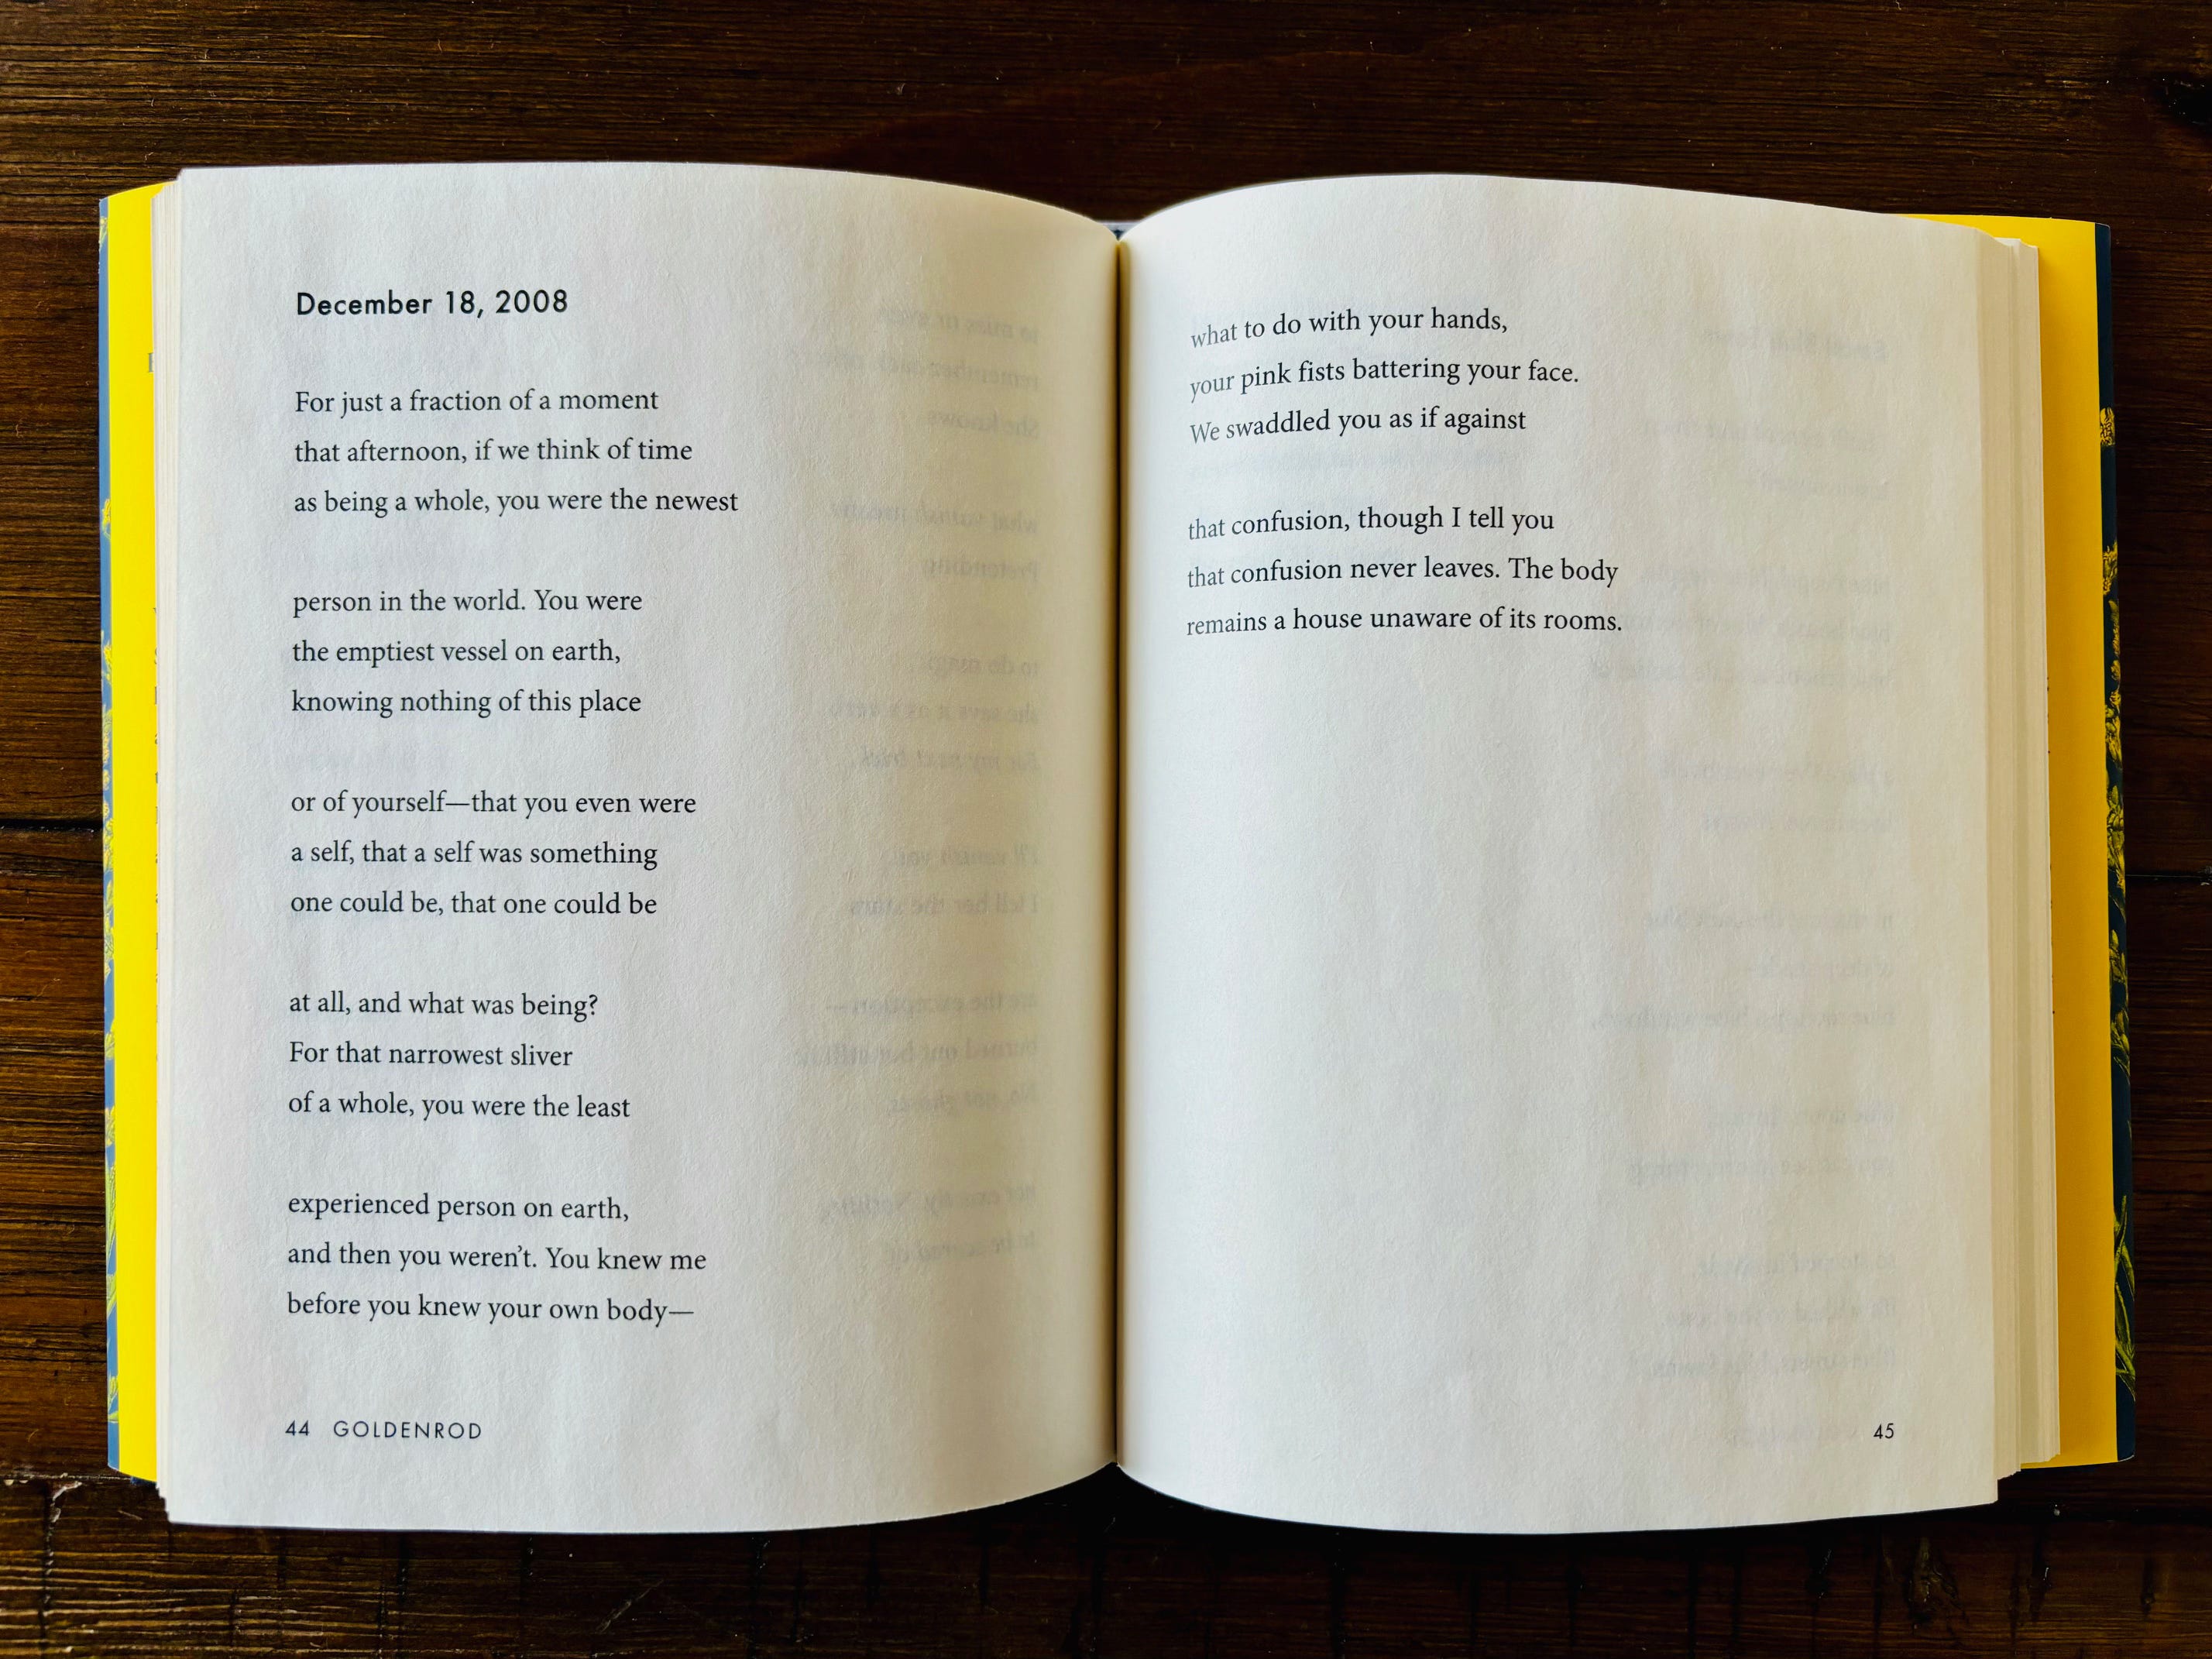 December 18, 2008
For just a fraction of a moment
that afternoon, if we think of time
as being a whole, you were the newest
person in the world. You were
the emptiest vessel on earth,
knowing nothing of this place
or of yourself—that you even were
a self, that a self was something
one could be, that one could be
at all, and what was being?
For that narrowest sliver
of a whole, you were the least
experienced person on earth,
and then you weren’t. You knew me
before you knew your own body—
44 GOLDENROD
what to do with your hands,
your pink fists battering your face.
We swaddled you as if against
that confusion, though I tell you
that confusion never leaves. The body
remains a house unaware of its rooms.
45